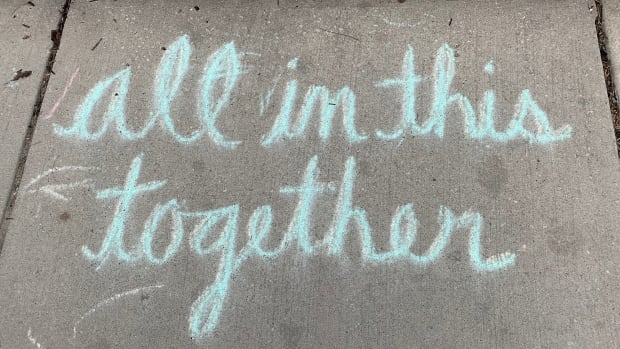 all in this
together